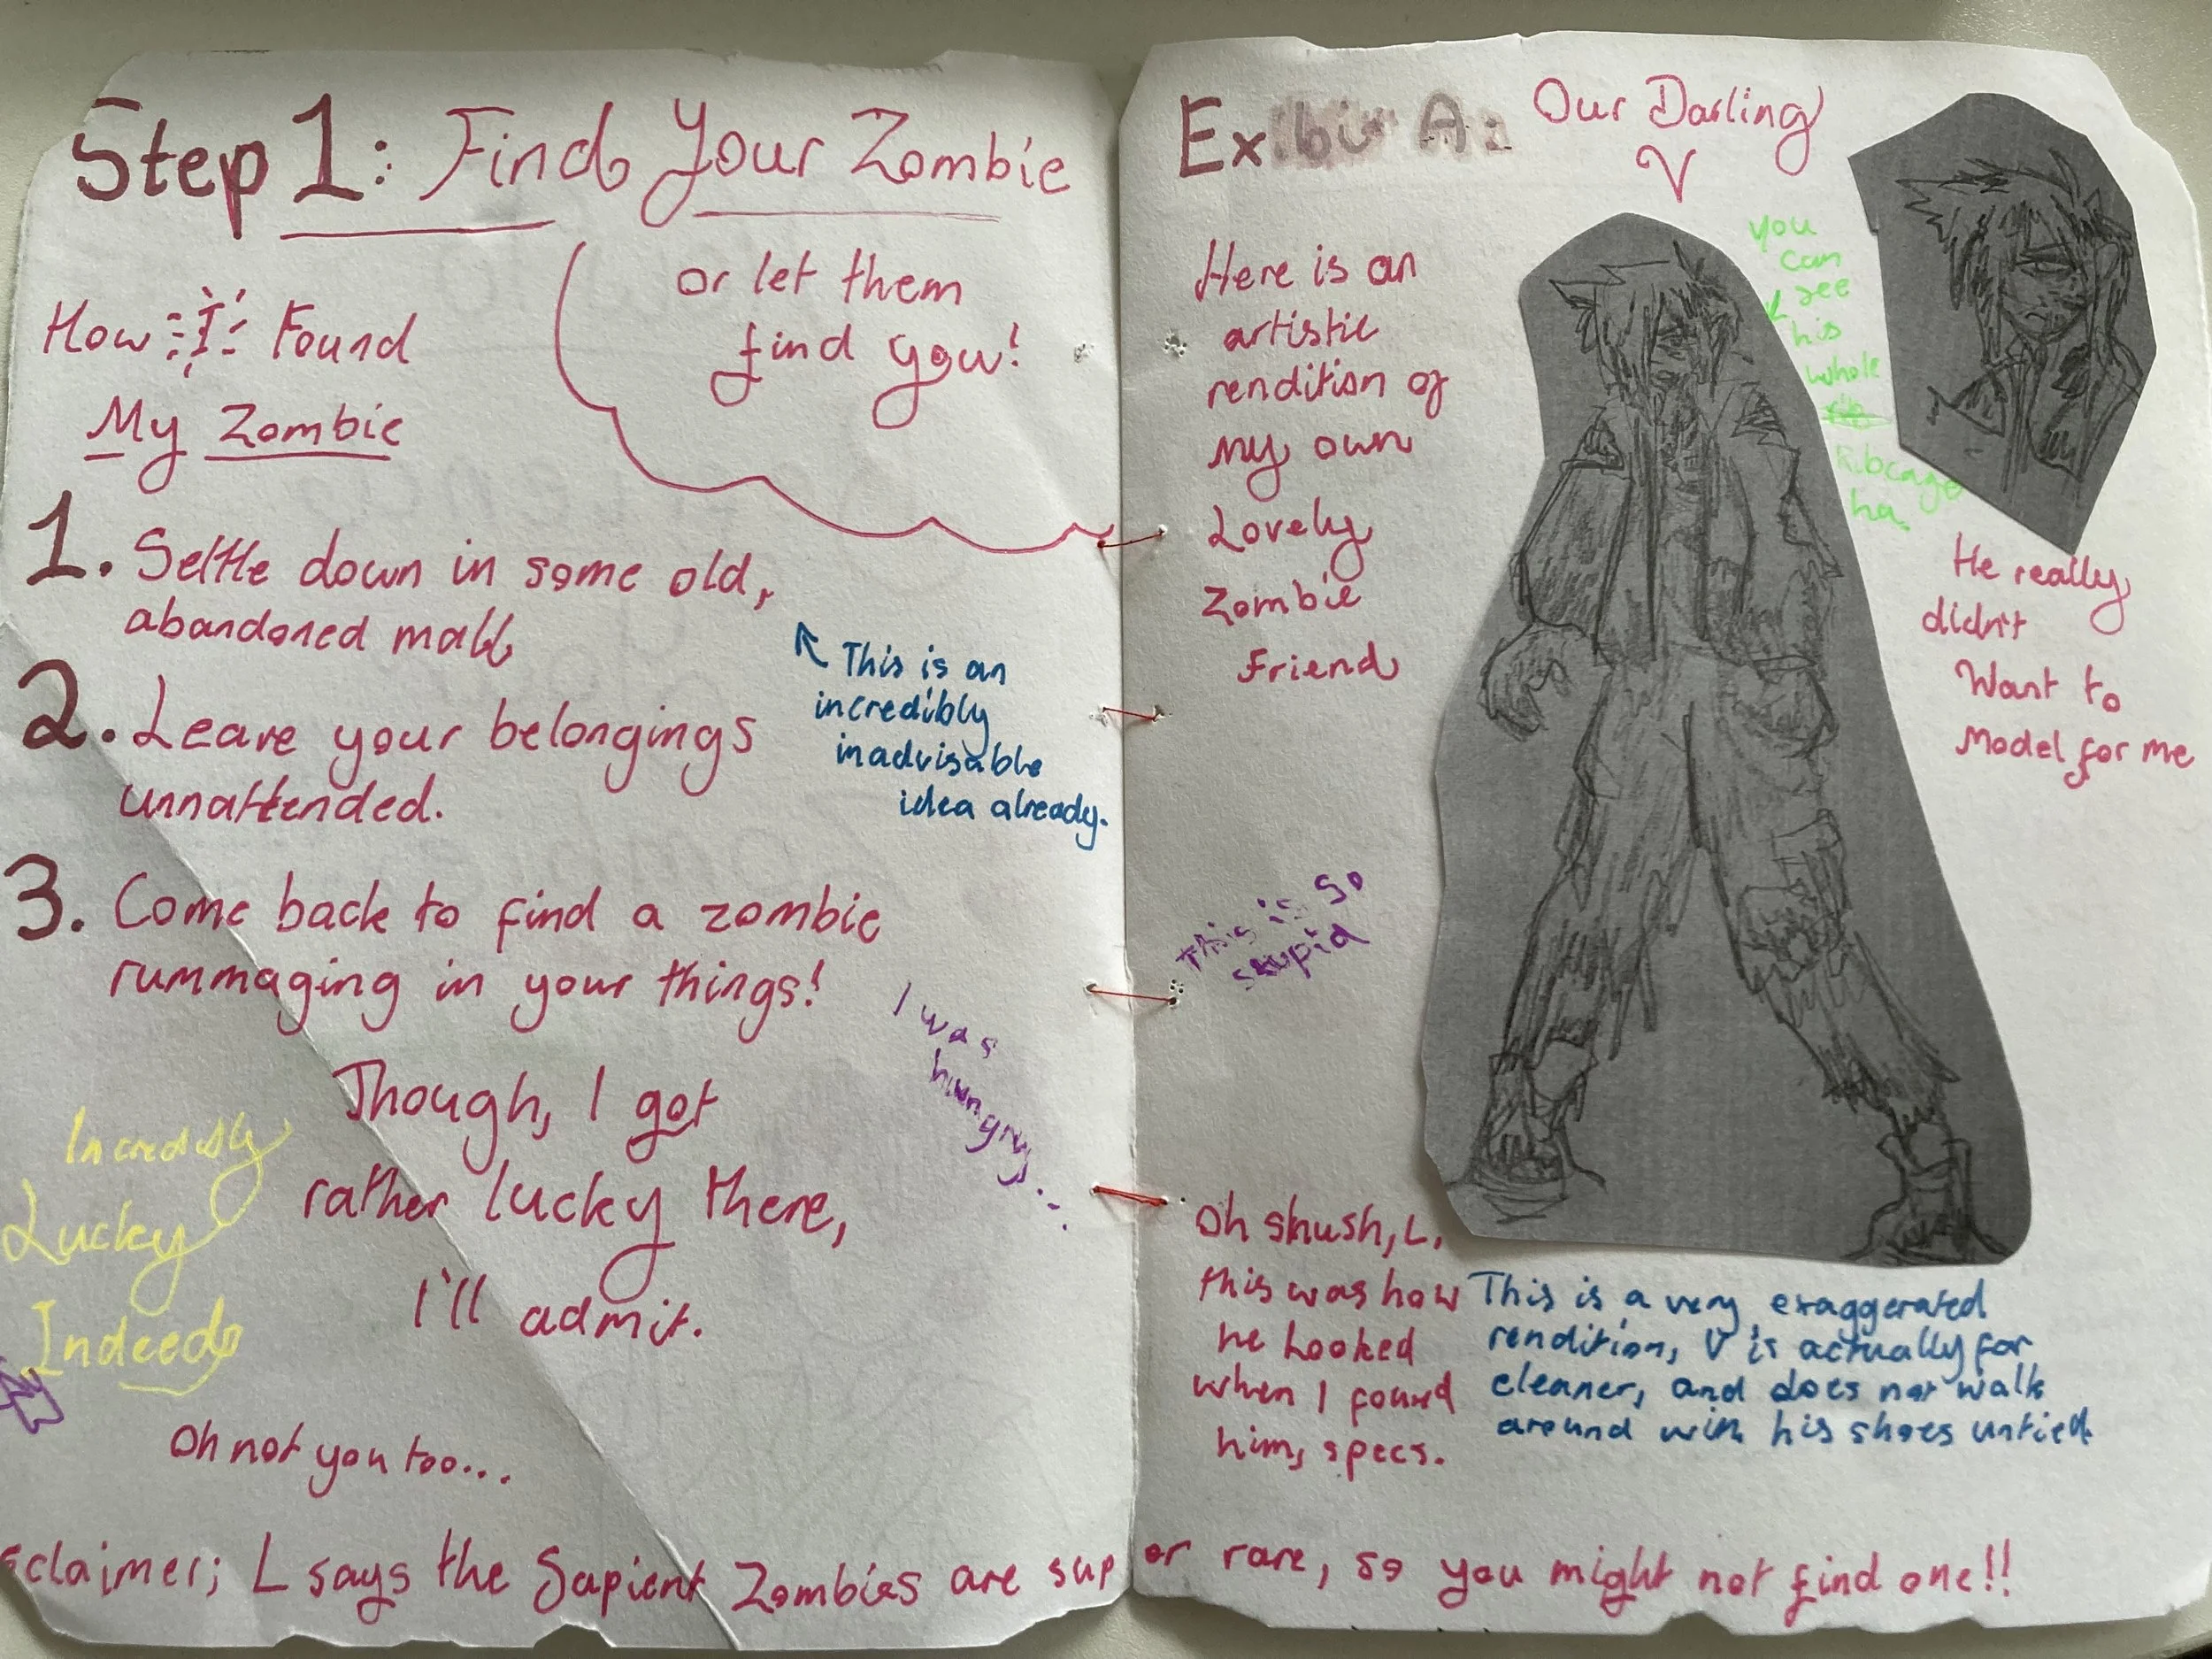 Step 1: Find Your Zombie
or let them
find you!
How I Found
My Zombie
1. Settle down in some old,
abandoned mall
This is an
incredibly
inadvisable
idea already.
2. Leave your belongings
unnattended.
3. Come back to find a zombie
rummaging in your things!
I was
hungry...
Though, I got
rather lucky there,
I'll admit.
Incredibly
Lucky
Indeed
Oh not you too...
sclaimer; L says the Sapient Zombies are super rare, so you might not find one!!
Exibit A: Our Darling
V
Here is an
artistic
rendition of
my own
Lovely
Zombie
Friend
you
can
see
his
whole
Ribcage
ha.
He really
didn't
Want to
Model for me
This is so
stupid
Oh shush, L,
this was how
he looked
when I found
him, specs.
This is a very exaggerated
rendition, V is actually far
cleaner, and does not walk
around with his shoes untied.